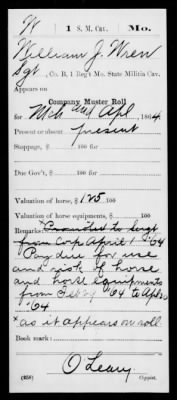 W 1 S. M. Cav. Mo.
William J. Wren
Sgt, Co. B, 1 Reg't Mo. State Militia Cav.
Appears on
Company Muster Roll
for Mch and Apl, 1864
Present or absent present
Stoppage, $ 100 for
Due Gov't, $ 100 for
Valuation of horse, $ 125 100
Valuation of horse equipments, $ 100
Remarks: × Promoted to Sergt
from Corp April 1 '64
Pay due for use
and risk of horse
and horse equipments
from Feb 29 '64 to Apl
'64
× as it appears on roll
Book mark:
O'Leary
(858) Copyist.